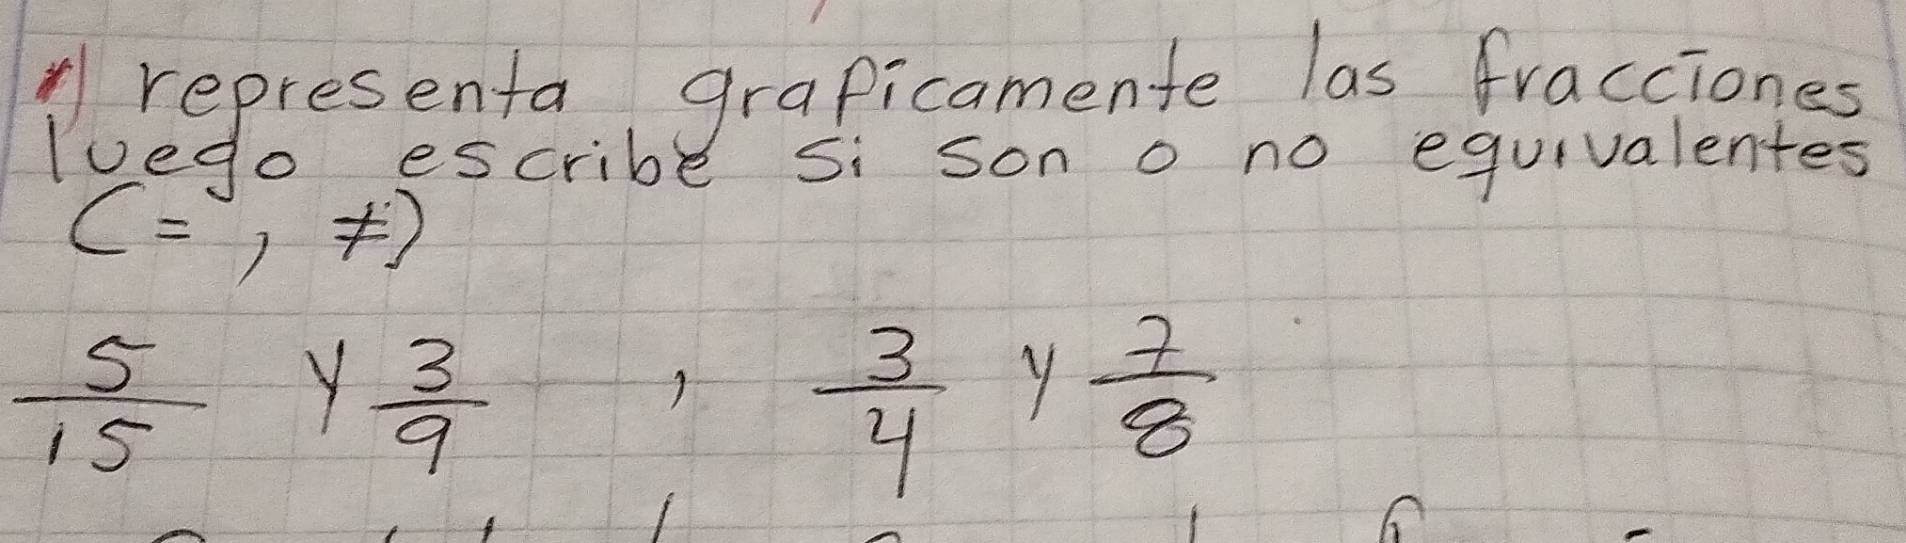 1) representa graficamente las fracciones
luego escribe si son o no equivalentes
(=, ≠)
5/15 y 3/9 , 3/4 y 7/8